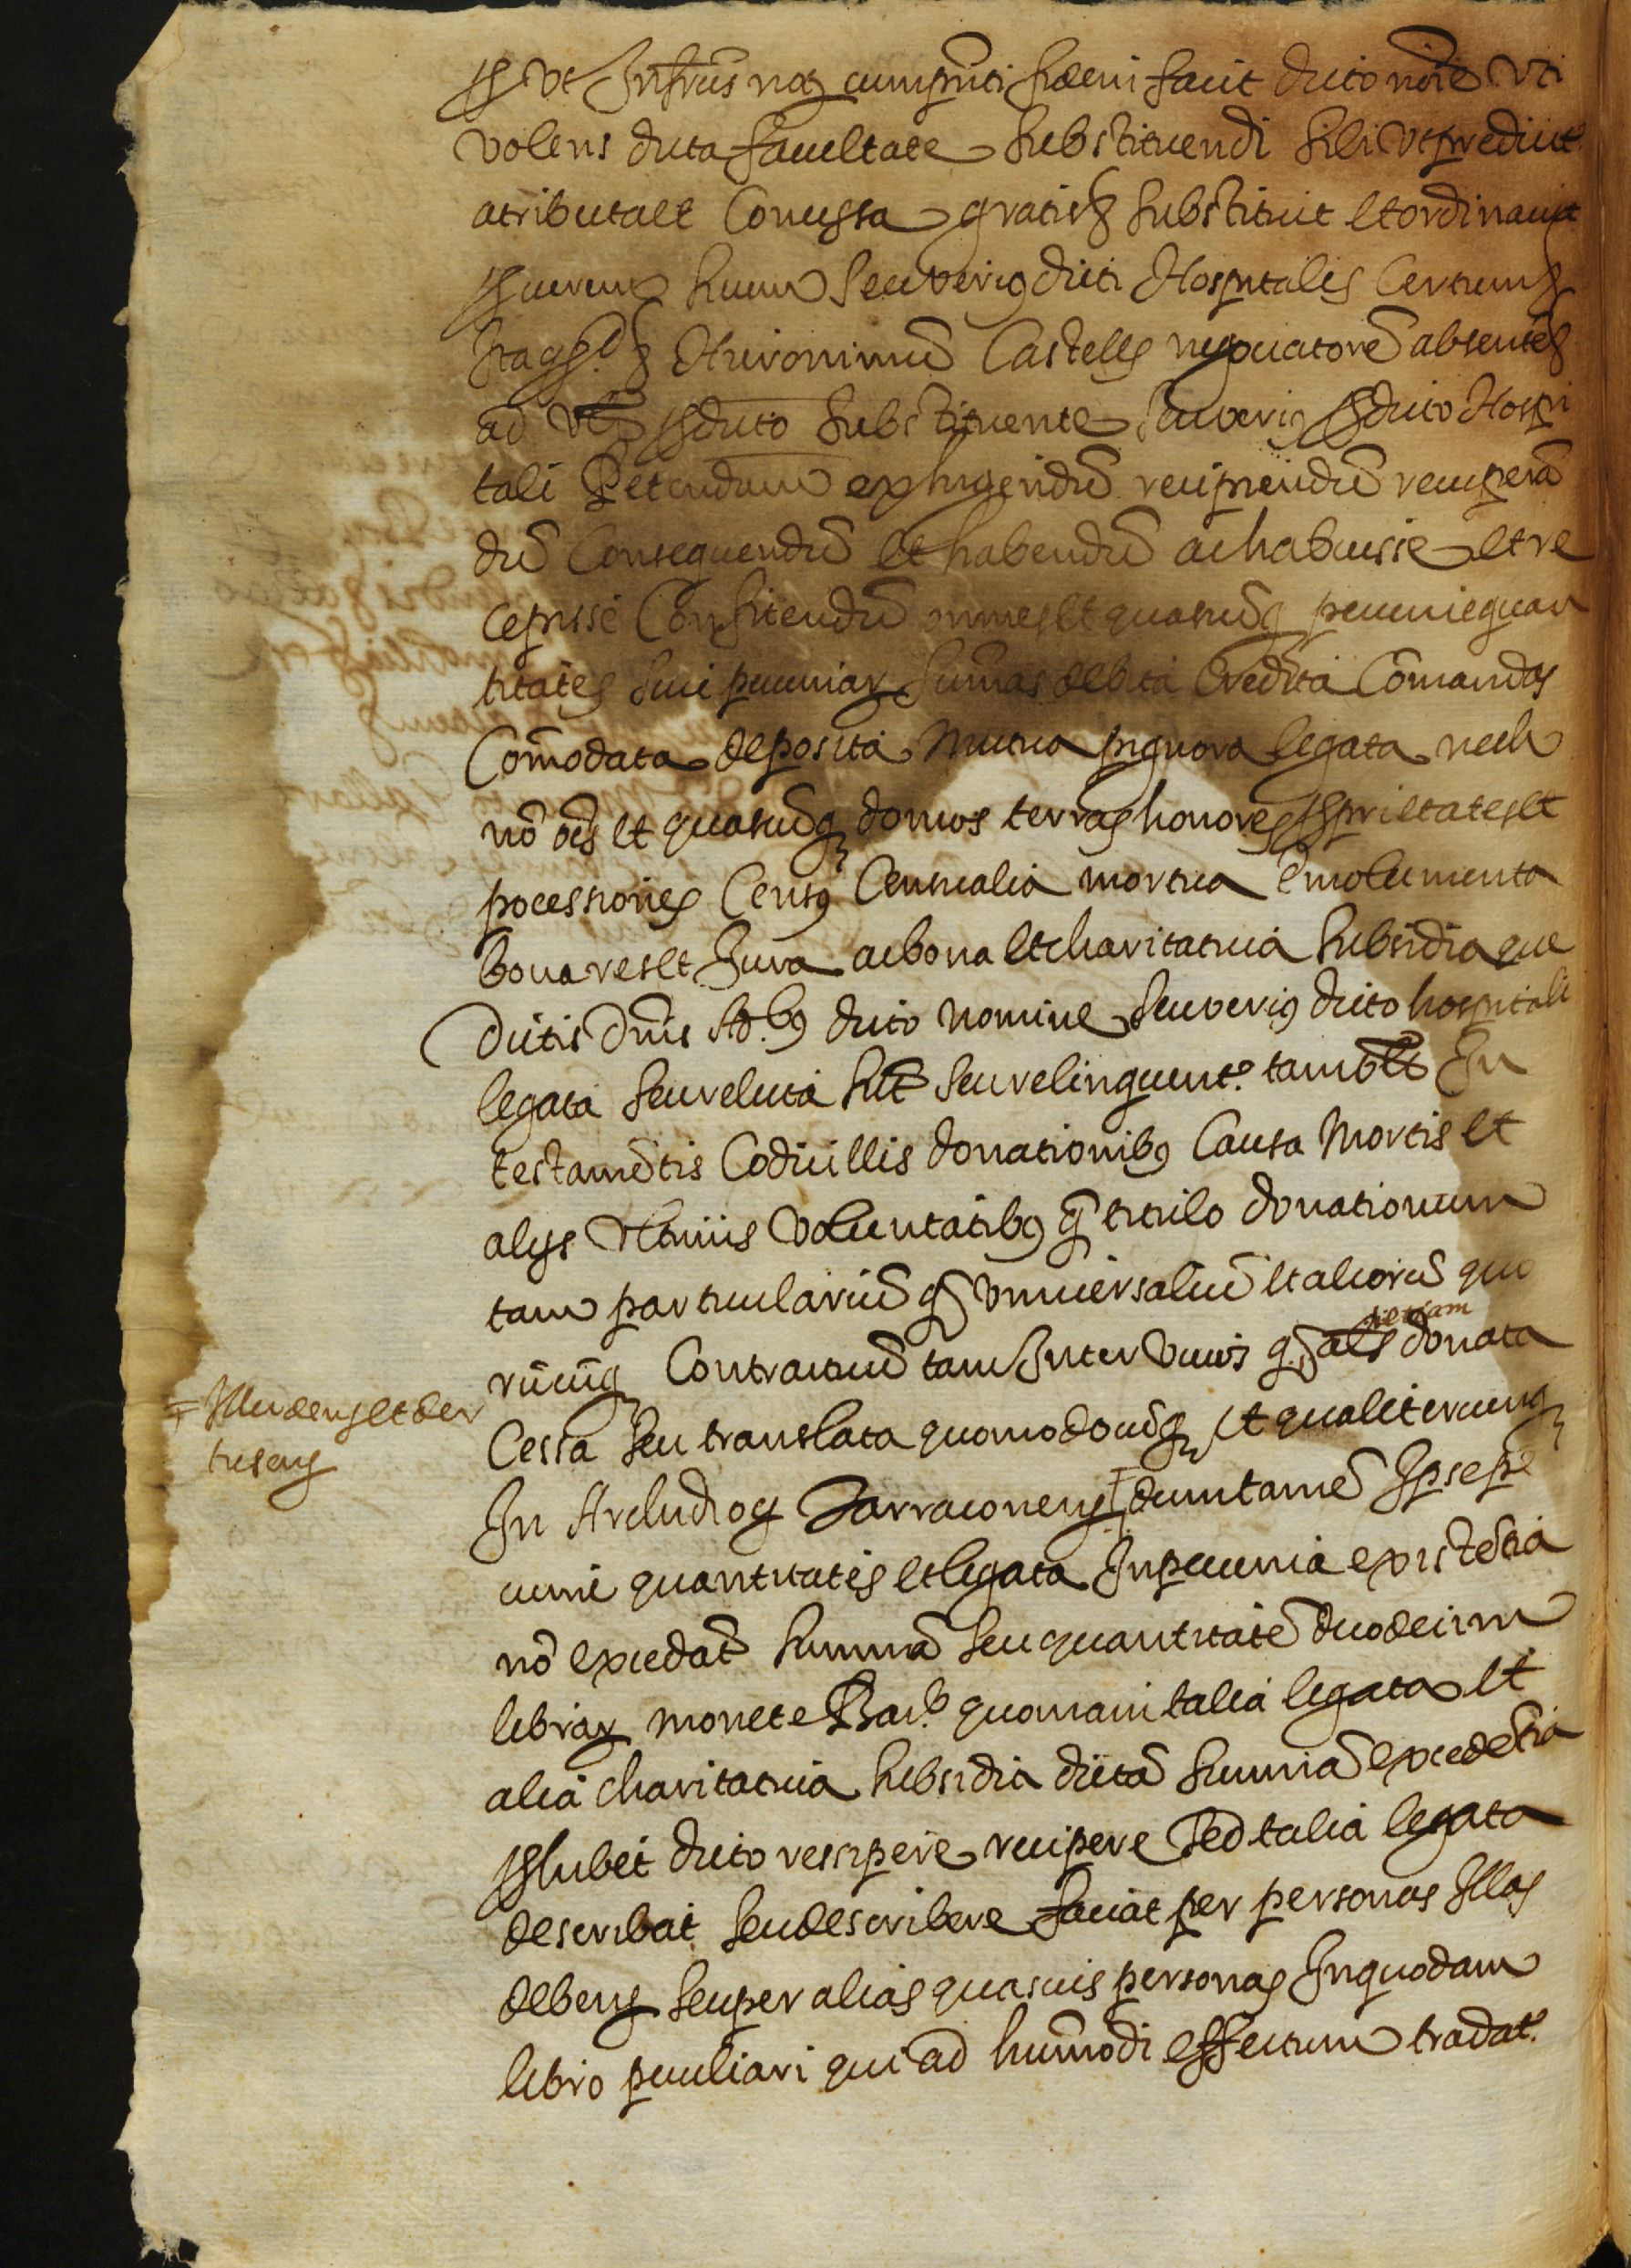 volens dicta facultate substituendi sibi ut predicit
atributa et Concessa gratis substituit et ordinavit
suum seu verius dicti Hospitalis Certum
Hieronimũ Castells negociatorẽ absentẽ
ad dicto substituente seu verius dicto Hospi
tali Petendum exhigendũ recipiendũ recuperã
dũ Consequendũ et habendũ ac habuisse et re
cepisse Confitendũ omnes et quascũq pecunie quan
titates sive pecuniar sum̃as debita Credita Com̃andas
Com̃odata deposita Mutua pignora legata nech
nõ oẽs et quascũq domos terras honores proprietates et
pocessiones Censꝯ Censualia mortua emolumenta
bona res et Jura ac bona et charitativa subsidia que
Dictis Dñis Ad.bꝯ dicto nomine seu veriꝯ dicto hospitali
legata seu relicta sũt seu relinquent.r tam In
testamẽtis Codicillis donationibꝯ Causa Mortis et
alijs ultimis Voluntatibꝯ q̃ titulo donationum
tam particulariũ q̃ universaliũ et aliorũ quo
rũcũq Contractuũ tam Inter Vivos q̃ als donata
etiam
Cessa seu translata quomodocũq et qualitercunq
=Illerdens et der
tusens
In Archidiog Tarraconens dumtamẽ Ipse pe
cunie quantitates et legata In pecunia existẽtia
nõ excedãt summã seu quantitatẽ duodecim
librar monete Bar.e quoniam talia legata et
alia charitativa subsidia dictã summã excedẽtia
hibet dicto recipere sed talia legata
describat seu describere faciat per personas Illas
debens seu per alias quasvis personas In quodam
libro peculiari qui ad huiusmodi effectum tradat.r